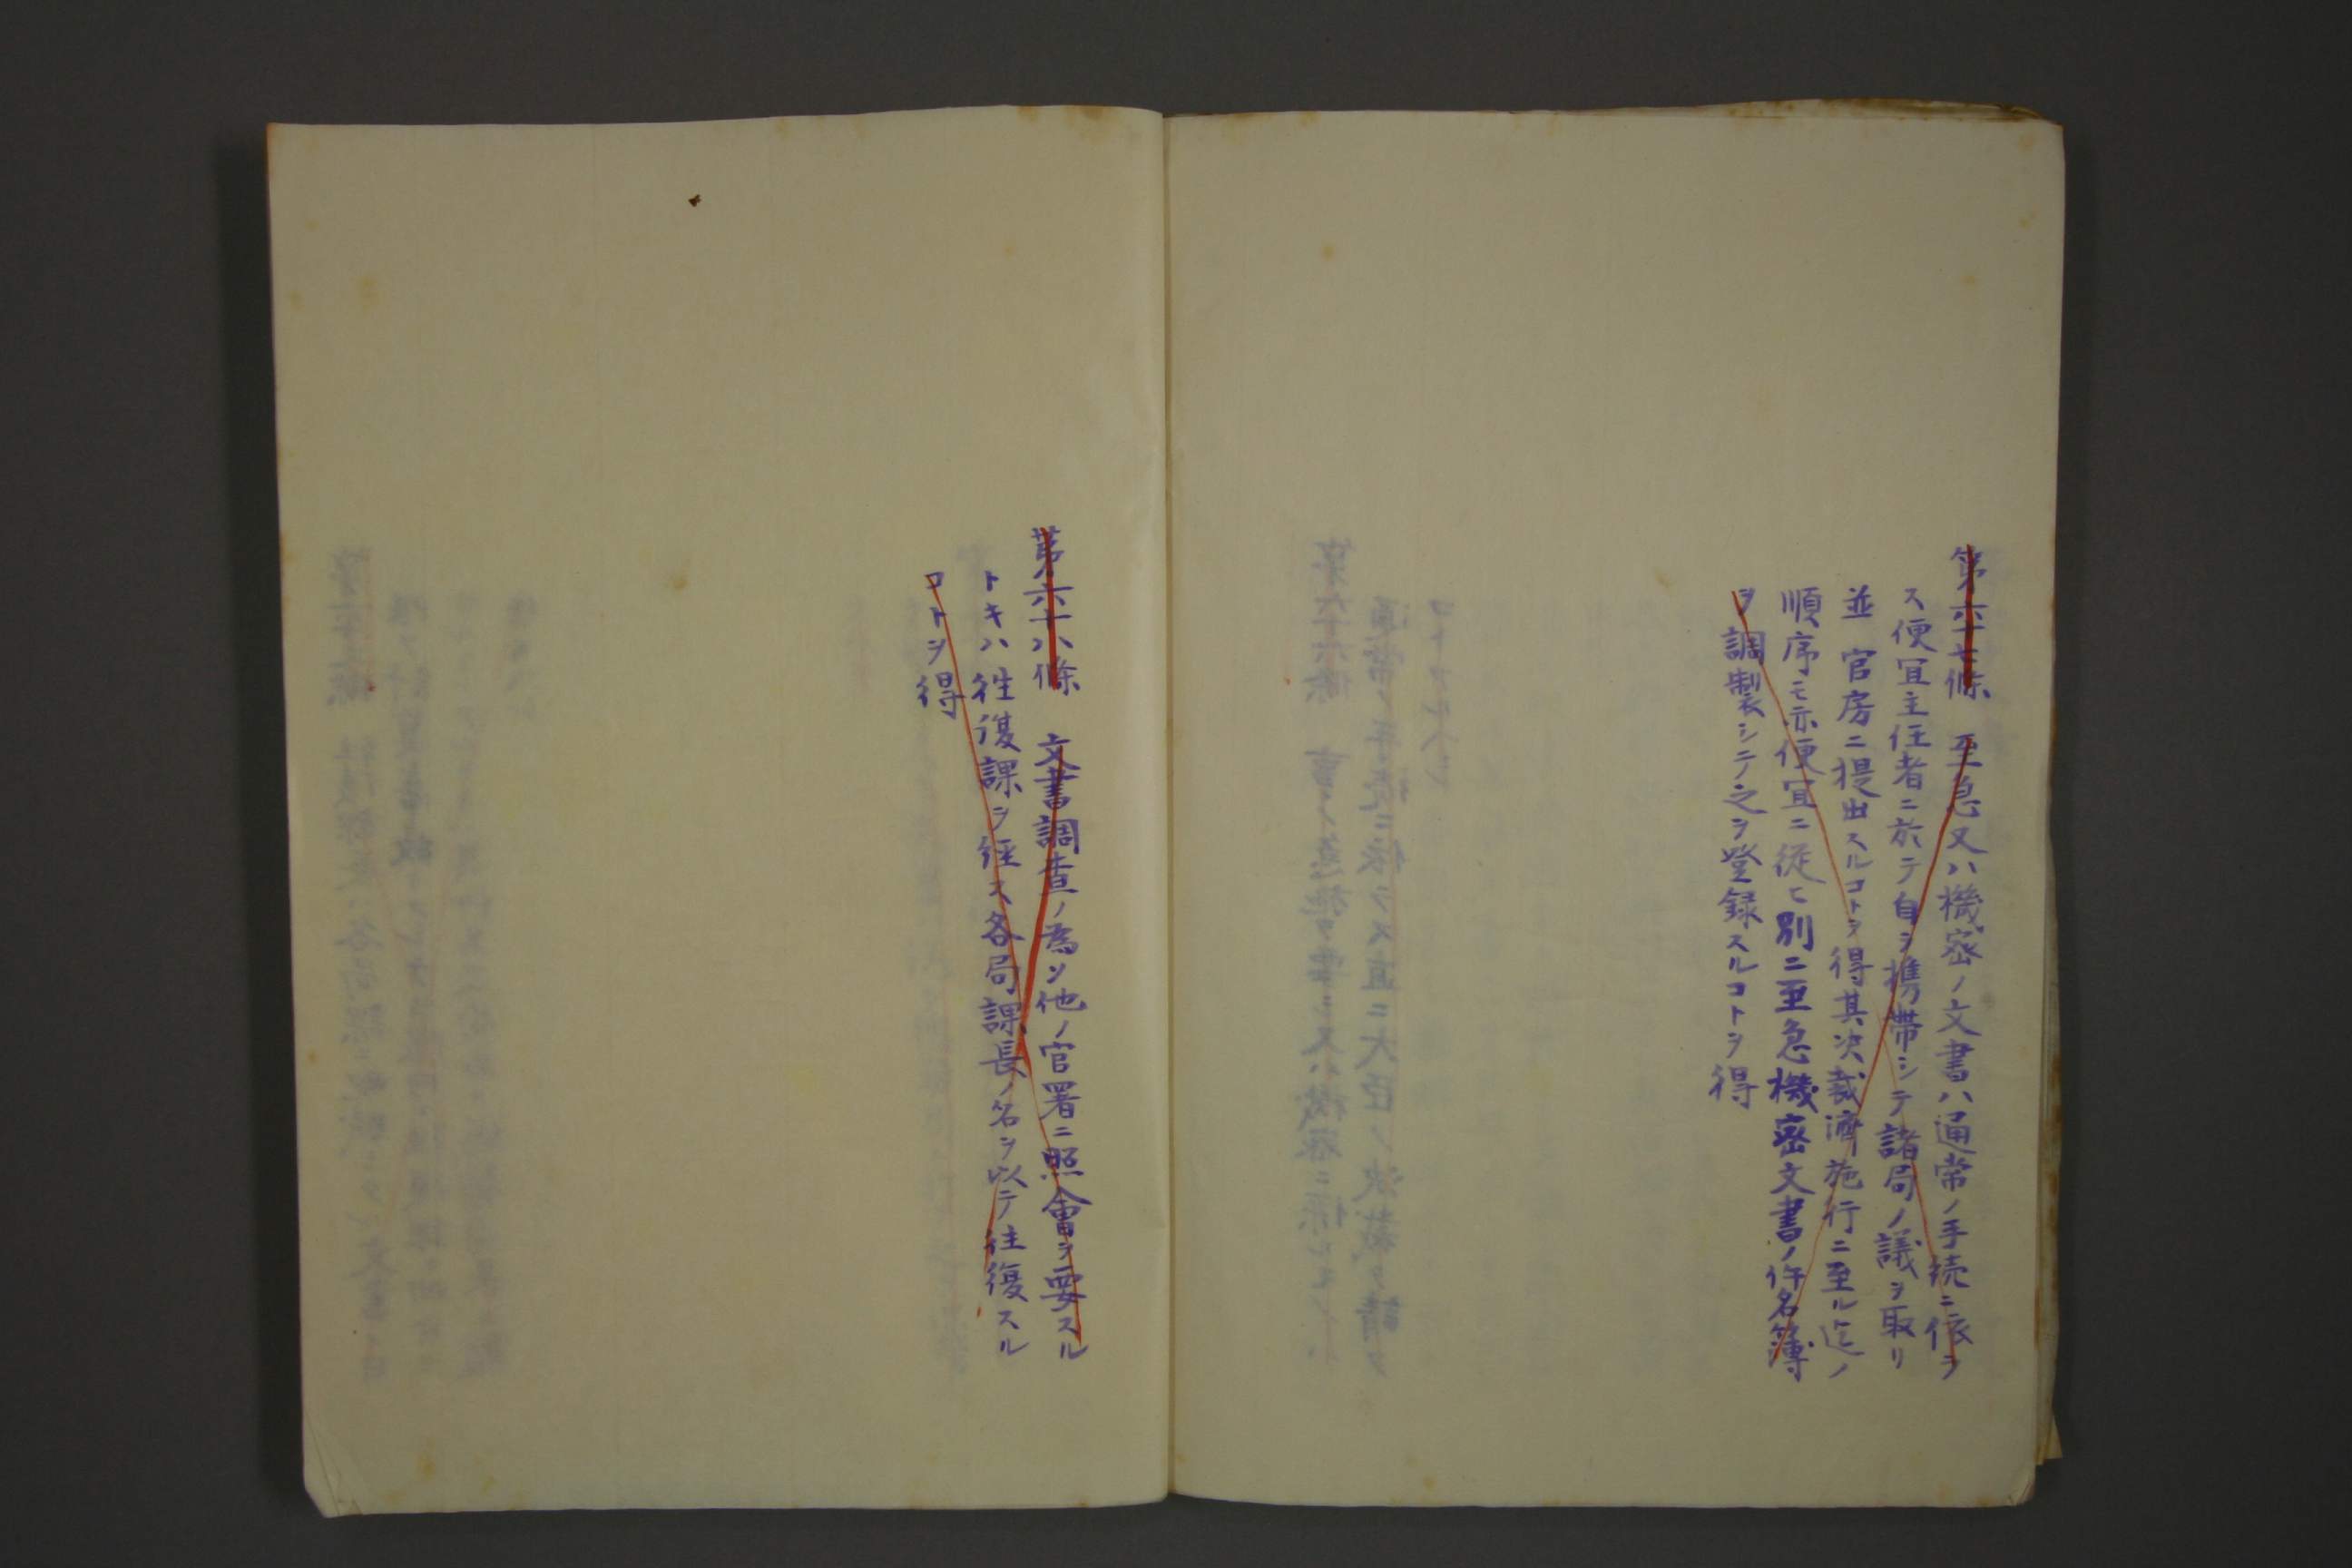 第六十七條　至急又ハ機密ノ文書ハ通常ノ手続ニ依ラ
ス便宜主任者ニ於テ自ラ携帯シテ諸局ノ議ヲ取リ
並官房ニ提出スルコトヲ得其決裁濟施行ニ至ル迄ノ
順序モ亦便宜ニ従ヒ別ニ至急機密文書ノ件名簿
ヲ調製シテ之ヲ登録スルコトヲ得
第六十八條　文書調査ノ為メ他ノ官署ニ照會ヲ要スル
トキハ往復課ヲ経ス各局課長ノ名ヲ以テ往復スル
コトヲ得